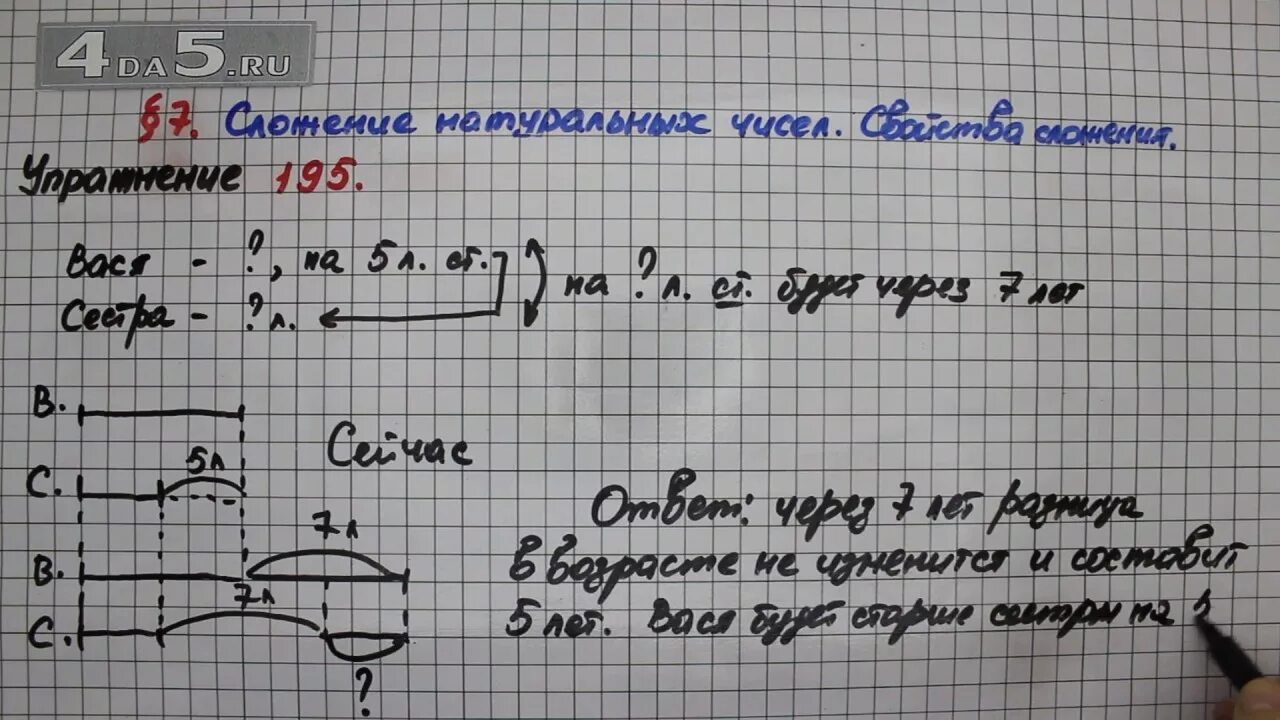 4DA5.RU
§7. Сложение натуральных чисел. Свойства сложения.
Упражнение 195.
Вася - ?, на 5 л. ст.
Сестра - ? л.
на ? л. ст. будет через 7 лет
В.
Сейчас
5л
С.
7л
В.
7л
С.
?
Ответ: через 7 лет разница
в возрасте не изменится и составит
5 лет. Вася будет старше сестры на